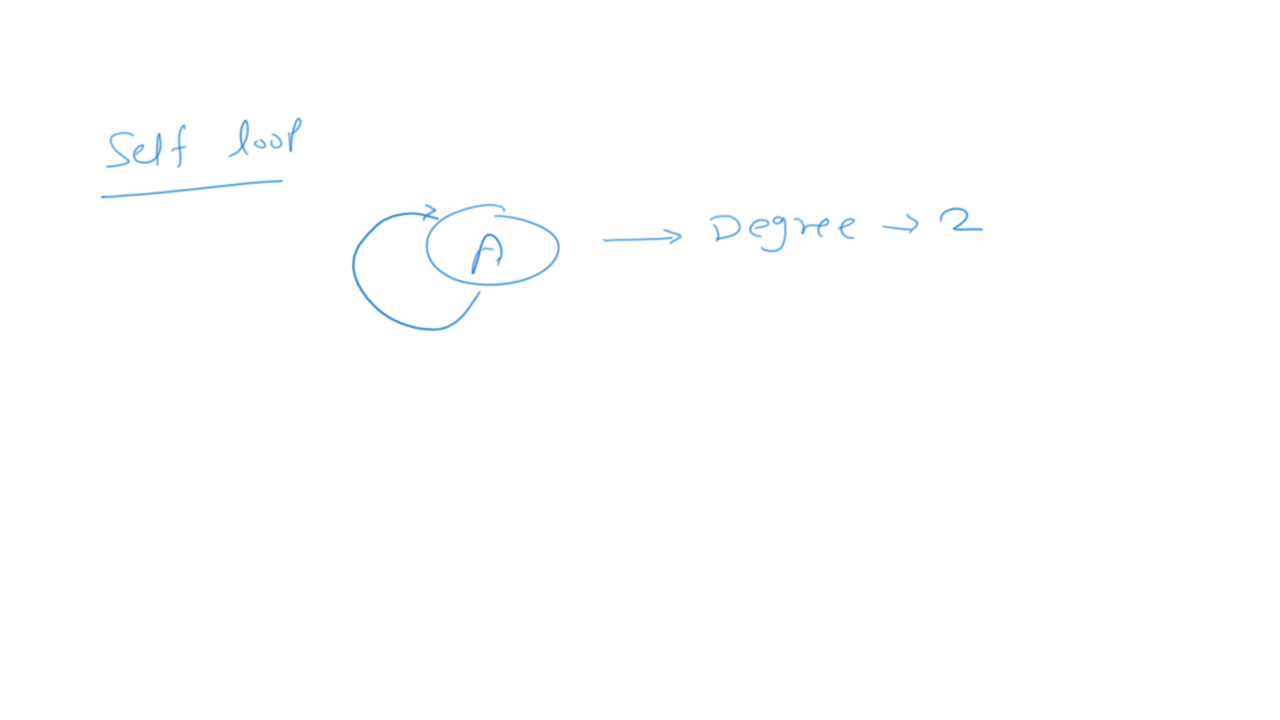 Self loop
A → Degree → 2